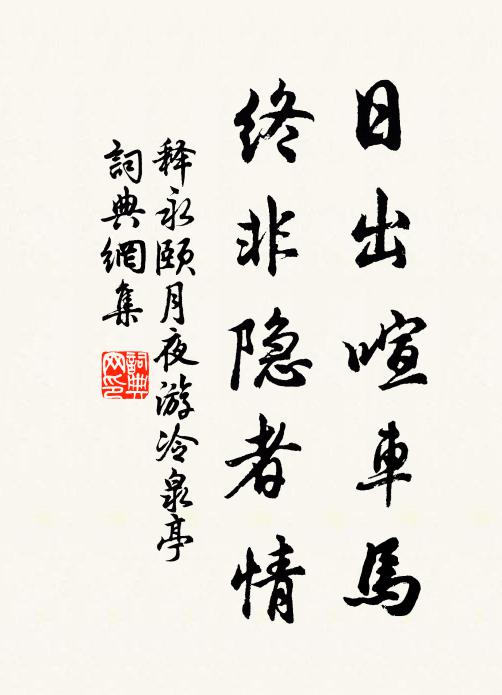 日出喧車馬
终非隐者情
释永颐月夜游冷泉亭
詞典網集
詞典网印